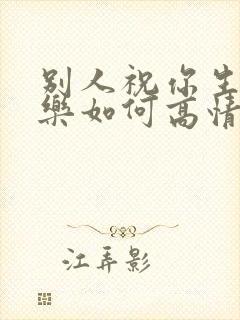 别人祝你生
乐如何高情
江弄影